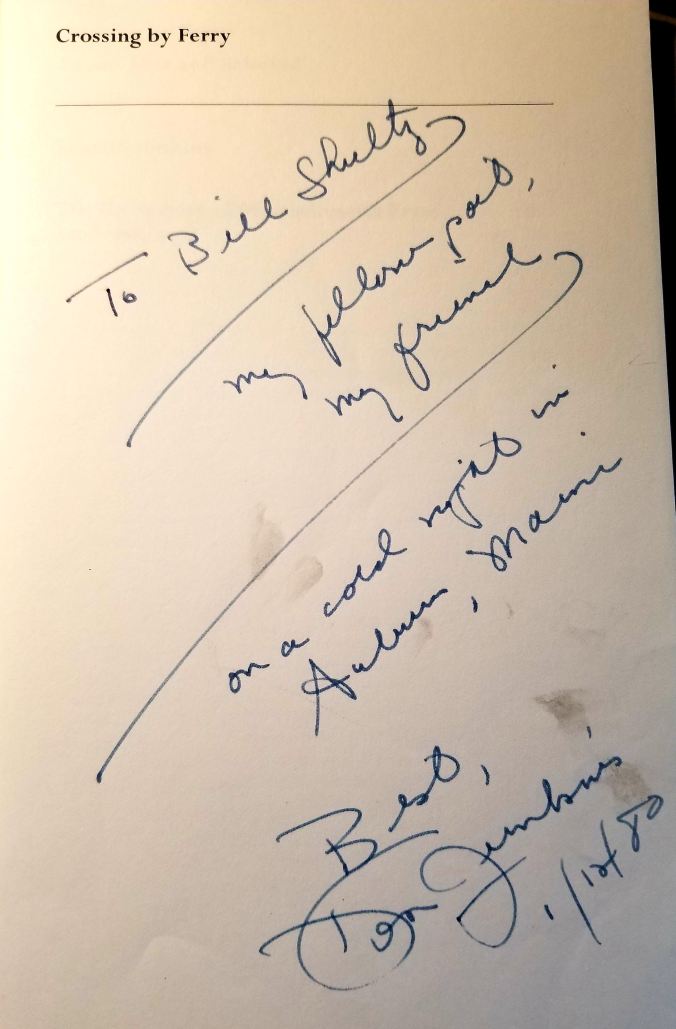 Crossing by Ferry
To Bill Shultz
my fellow poet,
my friend
on a cold night in
Auburn, Maine
Best,
Don Junkins
1/12/80